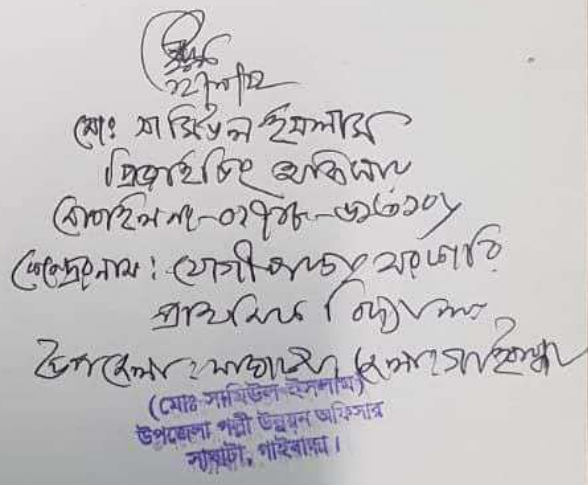 ইসলাম
মোঃ সামিউল ইসলাম
প্রিজাইডিং অফিসার
মোবাইল নং-
কেন্দ্রের নাম: সরকারি
প্রাথমিক বিদ্যালয়
উপজেলা: সাঘাটা জেলা: গাইবান্ধা
(মোঃ সামিউল ইসলাম)
উপজেলা পল্লী উন্নয়ন অফিসার
সাঘাটা, গাইবান্ধা।